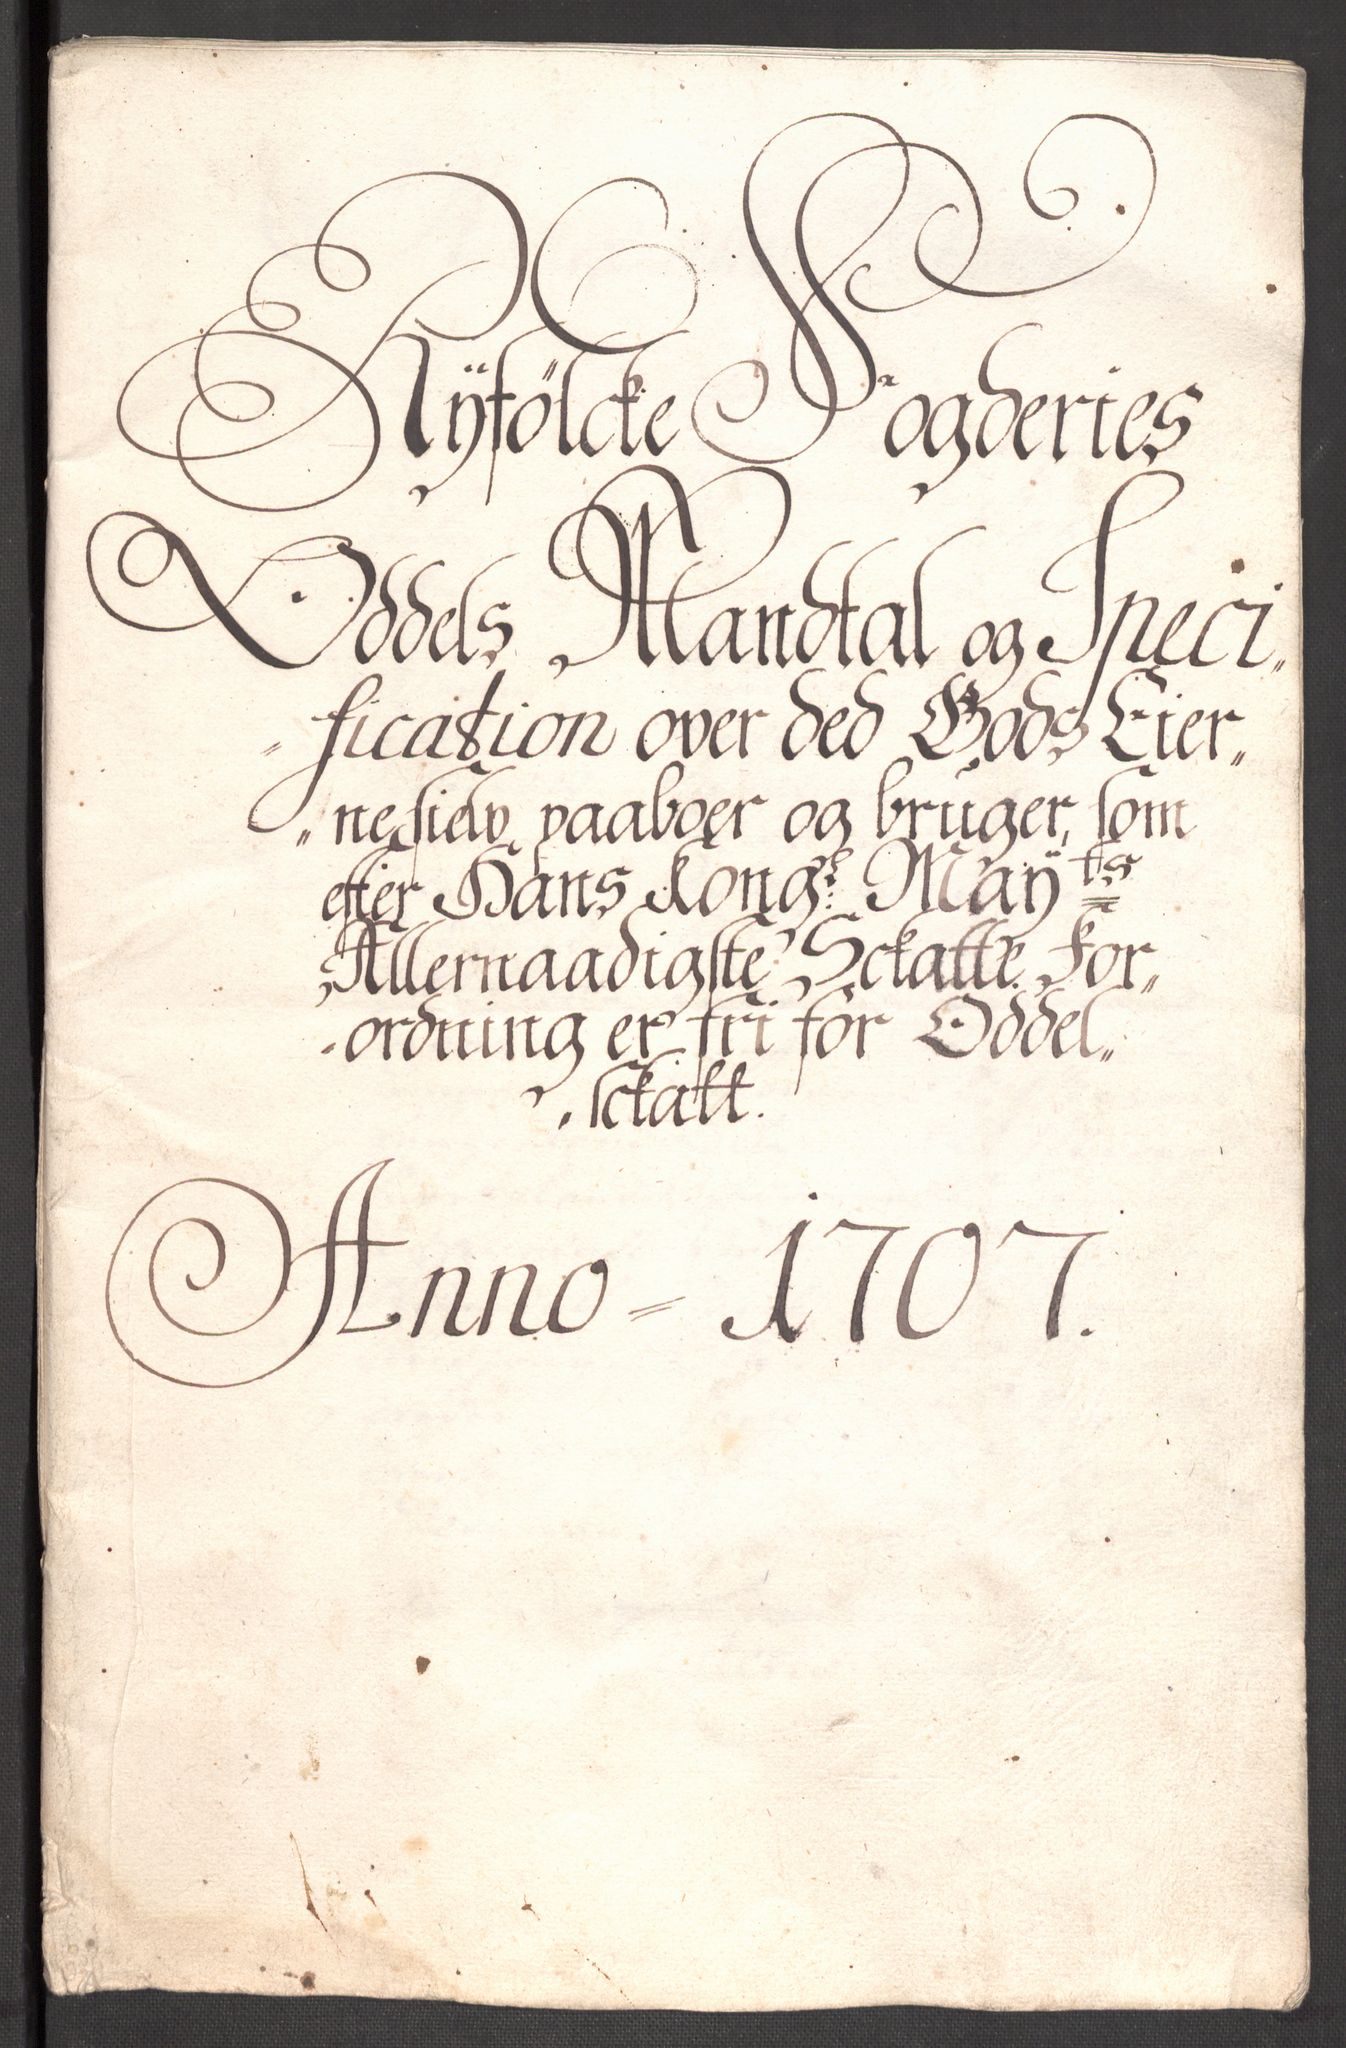 Ryfölcke Fogderies
Oddels Mandtal og Speci„
„fication over ded Gods Eier„
„ne sielv paaboer og bruger, som
efter Hans Kong:l Mayts
Allernaadigste Sckatte For„
„ordning er fri for Oddel„
„sckatt.
Anno = 1707.